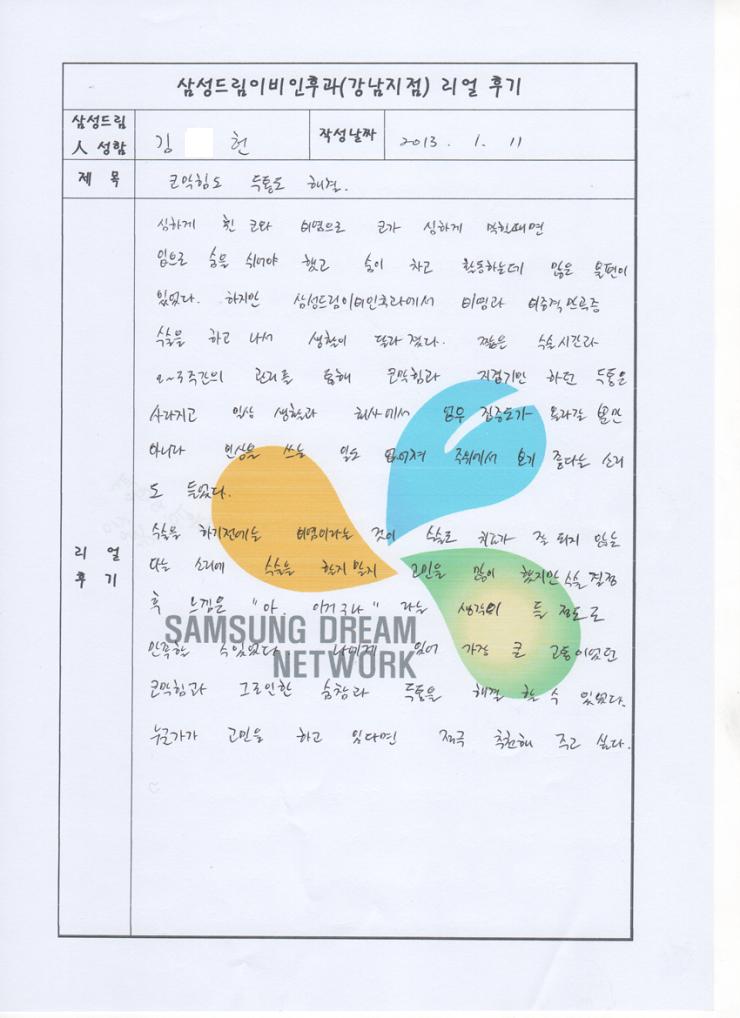 삼성드림이비인후과(강남지점) 리얼 후기
삼성드림
人 성함
김 헌
작성날짜
2013. 1. 11
제 목
코막힘도 두통도 해결.
심하게 휜 코와 비염으로 코가 심하게 막힐때면
입으로 숨을 쉬어야 했고 숨이 차고 활동하는데 많은 불편이
있었다. 하지만 삼성드림이비인후과에서 비염과 비중격만곡증
수술을 하고 나서 생활이 달라졌다. 짧은 수술시간과
2~3주간의 관리를 통해 코막힘과 지겹기만 하던 두통은
사라지고 일상 생활과 회사에서 업무 집중도가 올라갈 뿐만
아니라 인상을 쓰는 일도 없어져 주위에서 보기 좋다는 소리
도 들었다.
수술을 하기전에는 비염이라는 것이 수술로 치료가 잘 되지 않는
다는 소리에 수술을 할지 말지 고민을 많이 했지만 수술 결정
후 느낌은 "아. 이거구나" 라는 생각이 들 정도로
만족할 수있었다. 나에게 있어 가장 큰 고통이었던
코막힘과 그로인한 숨참과 두통을 해결 할 수 있었다.
누군가가 고민을 하고 있다면 적극 추천해 주고 싶다.
리 얼
후 기
SAMSUNG DREAM
NETWORK